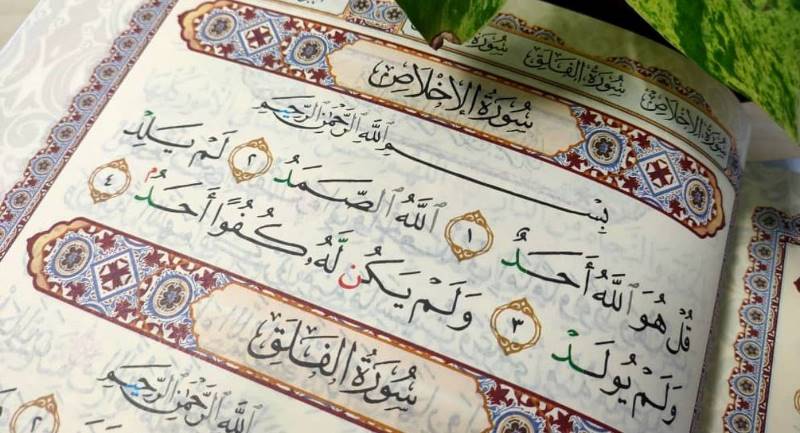 سُورَةُ الإِخْلَاصِ
سُورَةُ الفَلَقِ
سُورَةُ الإِخْلَاصِ
بِسْمِ ٱللَّهِ ٱلرَّحْمَٰنِ ٱلرَّحِيمِ
قُلْ هُوَ ٱللَّهُ أَحَدٌ ١ ٱللَّهُ ٱلصَّمَدُ ٢ لَمْ يَلِدْ
وَلَمْ يُولَدْ ٣ وَلَمْ يَكُن لَّهُۥ كُفُوًا أَحَدٌۢ ٤
سُورَةُ الفَلَقِ
بِسْمِ ٱللَّهِ ٱلرَّحْمَٰنِ ٱلرَّحِيمِ
٢